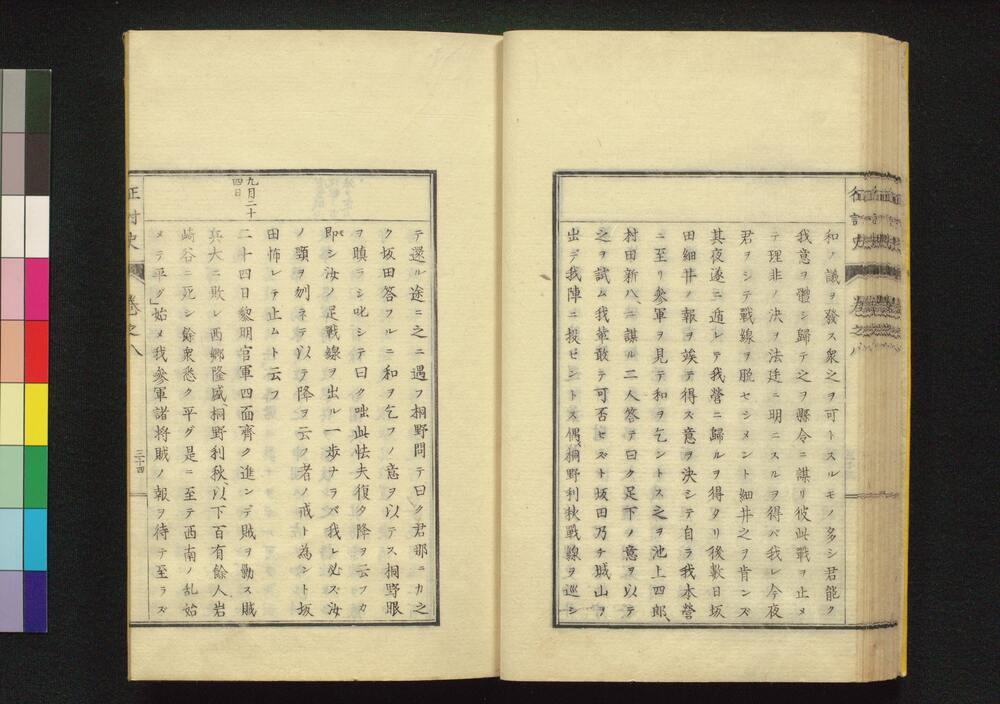 和ノ議ヲ發ス衆之ヲ可トスルモノ多シ君能ク
我意ヲ體シ歸テ之ヲ縣令ニ謀リ彼此戰ヲ止メ
テ理非ノ決ヲ法廷ニ明ニスルヲ得バ我レ今夜
君ヲシテ戰線ヲ脱セシメント細井之ヲ肯ンズ
其夜遂ニ遁レテ我營ニ歸ルヲ得タリ後數日坂
田細井ノ報ヲ竢テ得ス意ヲ決シテ自ラ我本營
ニ至リ參軍ヲ見テ和ヲ乞ントス之ヲ池上四郎、
村田新八、ニ謀ル二人答テ曰ク足下ノ意ヲ以テ
之ヲ試ム我輩敢テ可否セズト坂田乃チ城山ヲ
出デ我陣ニ投ゼントス偶、桐野利秋戰線ヲ巡シ
テ還ル途ニ之ニ遇フ桐野問テ曰ク君那ニカ之
ク坂田答フルニ和ヲ乞フノ意ヲ以テス桐野眼
ヲ瞋ラシ叱シテ曰ク咄此怯夫復ク降ヲ云フカ
即シ汝ノ足戰線ヲ出ル一歩ナラバ我レ必ズ汝
ノ頸ヲ刎ネテ以テ降ヲ云フ者ノ戒ト為ント坂
田怖レテ止ムト云フ
九月二十
四日
二十四日黎明官軍四面齊ク進ンデ賊ヲ勦ス賊
兵大ニ敗レ西鄕隆盛桐野利秋、以下百有餘人岩
崎谷ニ死シ餘衆悉ク平グ是ニ至テ西南ノ乱始
メテ平グ」始メ我參軍諸将賊ノ報ヲ待テ至ラズ
征討史
卷之八
三十四